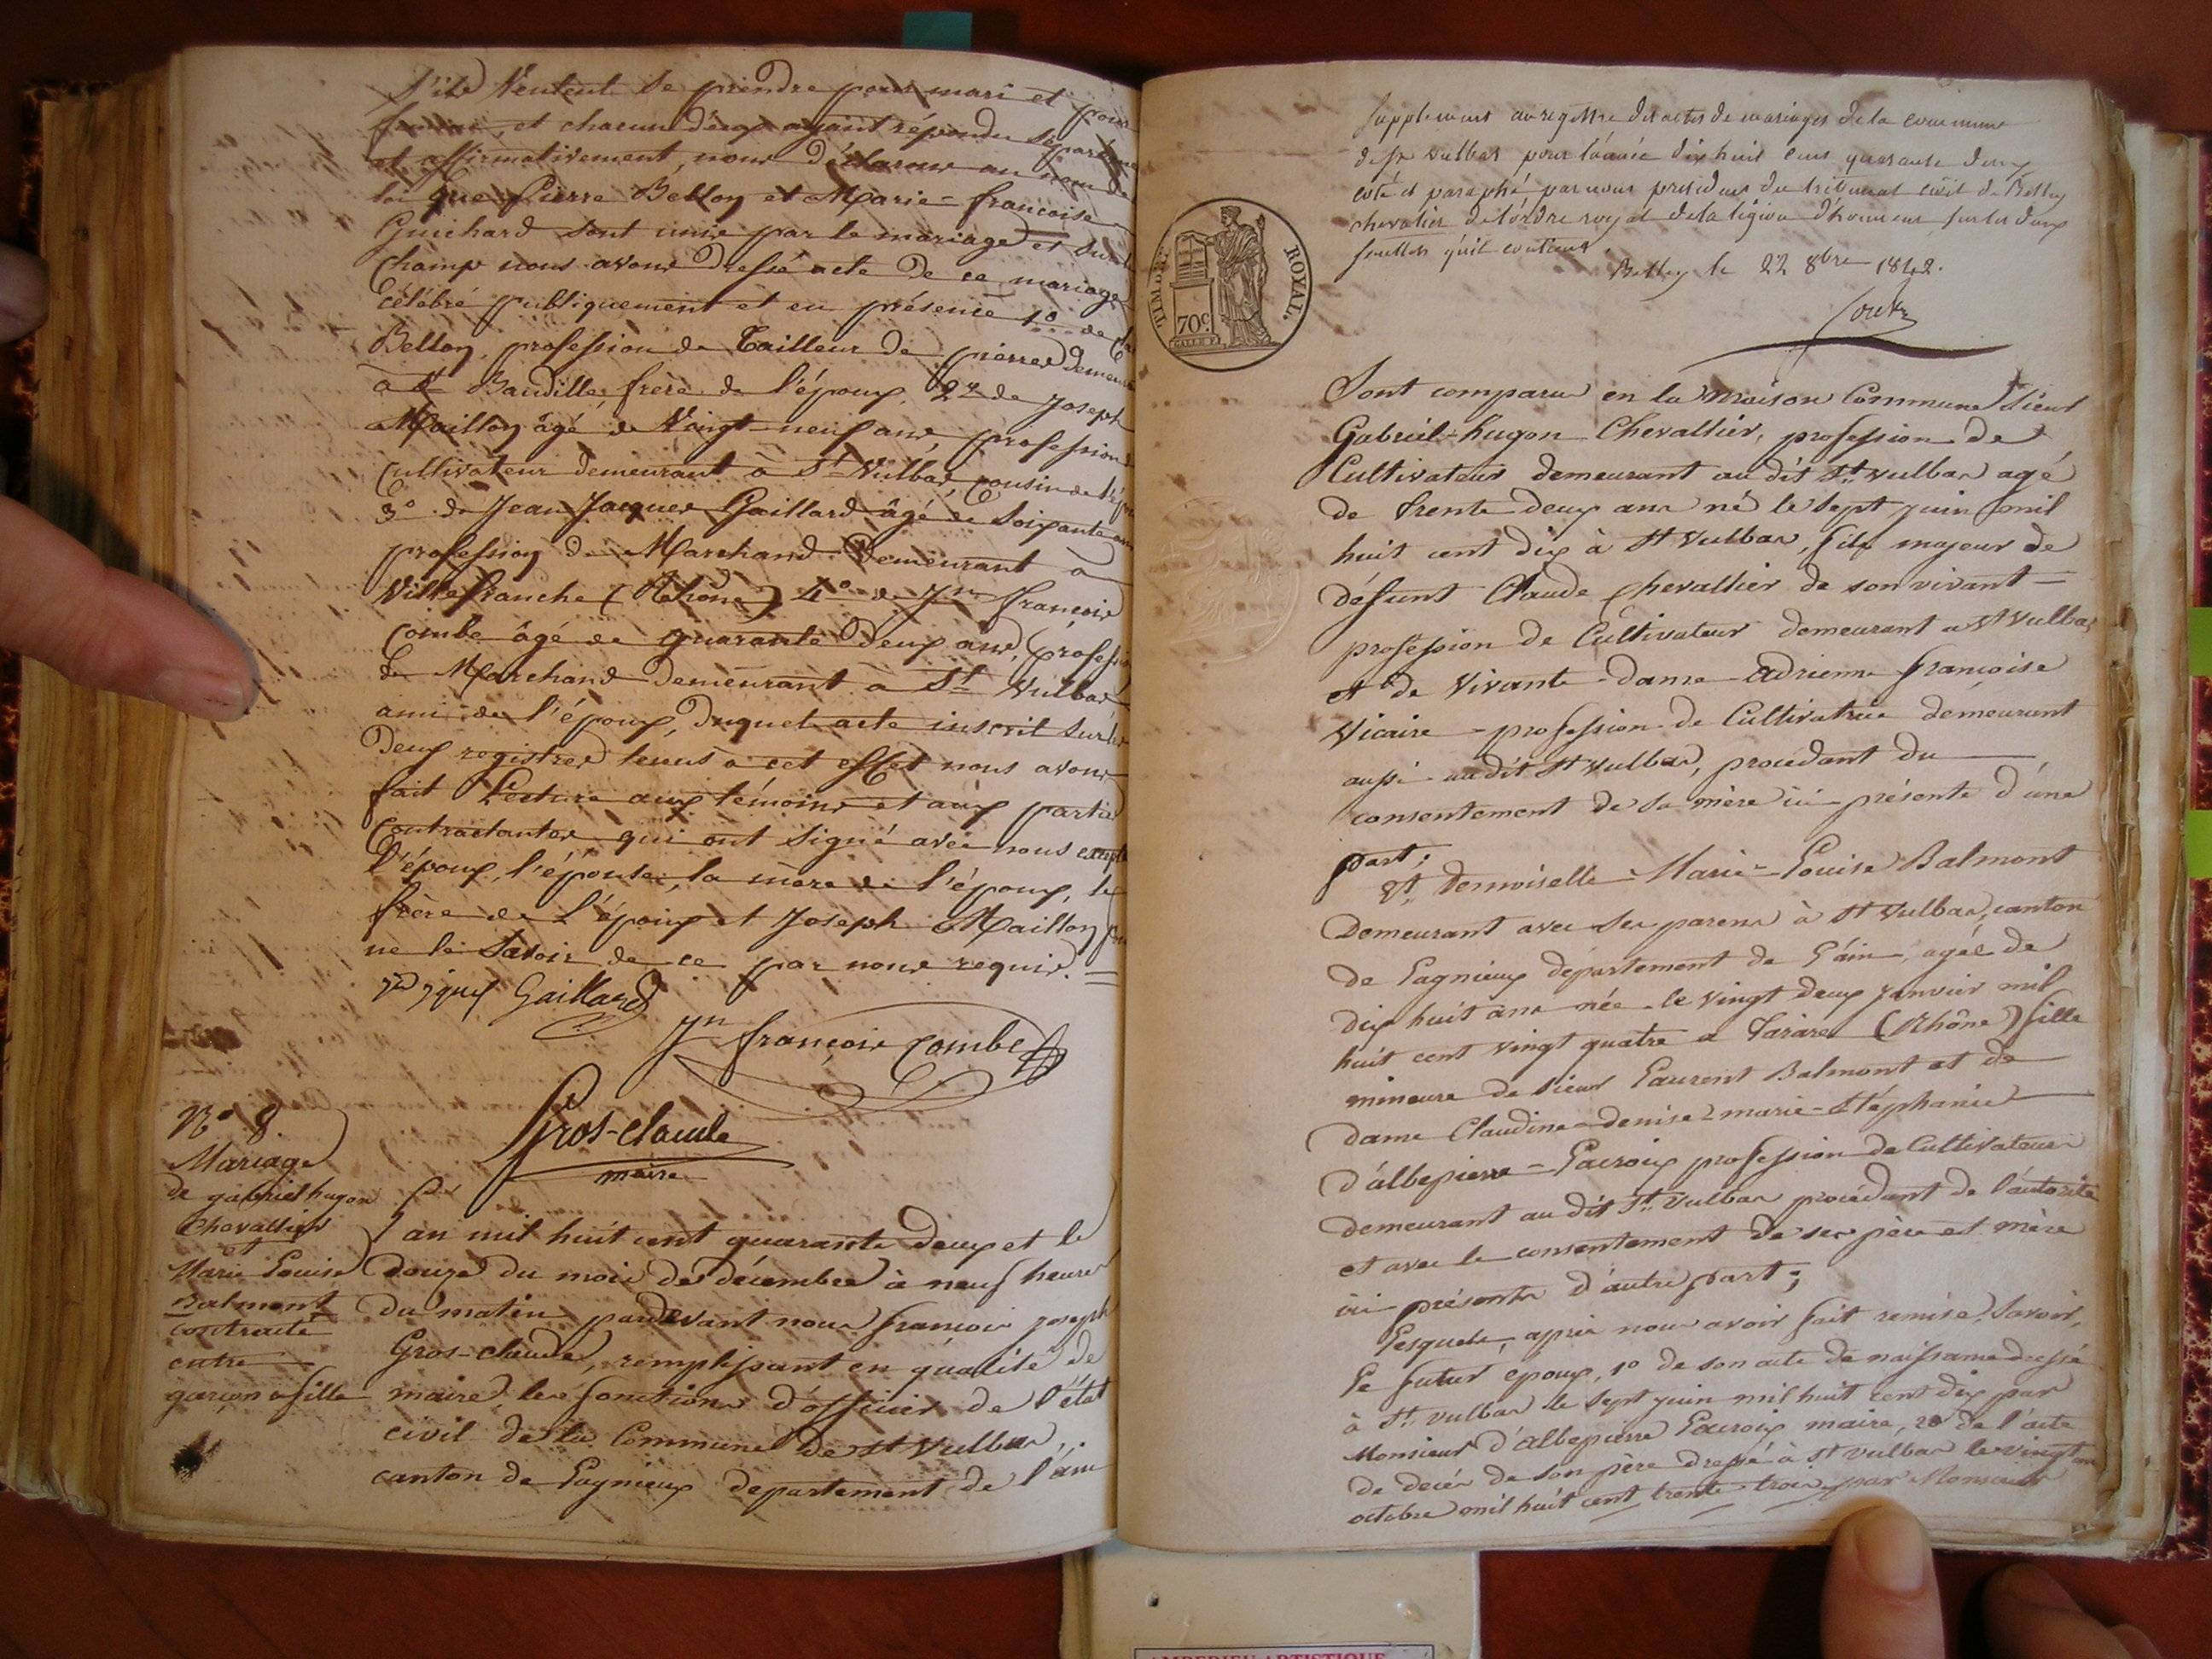 s'ils veulent se prendre pour mari et pour
femme, et chacun d'eux ayant répondu séparément
et affirmativement, nous déclarons au nom de
loi que Pierre Bellon et Marie-françoise
Guichard sont unis par le mariage et sur le
champ nous avons dressé acte de ce mariage
célébré publiquement et en présence 1º de
Bellon, profession de Tailleur de pierres demeurant
à St Baudille, frère de l'époux, 2º de joseph
Maillon âgé de Vingt-neuf ans, profession
Cultivateur demeurant à St Vulbas, Cousin de
3º de Jean Jacques Gaillard âgé de Soixante ans
profession de Marchand Demeurant à
Villefranche (Rhône) 4º de Jn françois
Combe âgé de quarante Deux ans, profession
de Marchand Demeurant à St Vulbas
ami de l'époux, Duquel acte inscrit sur les
Deux registres tenus à cet effet nous avons
fait Lecture aux témoins et aux parties
Contractantes qui ont signé avec nous excepté
l'époux, l'épouse, la mère de l'époux, le
frère de l'époux et Joseph Maillon pour
ne le Savoir de ce par nous requis.
Gaillard
Jn françois Combe
Gros-claude
maire
Nº 8
Mariage
de gabriel hugon
Chevallier
et
Marie Louise
Balmont
contracté
entre
garçon & fille
L'an mil huit cent quarante deux et le
douze du mois de décembre à neuf heures
du matin pardevant nous françois joseph
Gros-claude, remplissant en qualité de
maire, les fonctions d'officier de l'état
civil de la Commune de St Vulbas,
canton de Lagnieux departement de l'ain
Supplement au registre des actes de mariages de la commune
de St vulbas pour l'année dix huit cent quarante deux
coté et paraphé par nous president du tribunal civil de Belley
chevalier de l'ordre royal de la légion d'honneur sur les deux
feuilles qu'il contient.
Belley le 22 8bre 1842.
TIMBRE ROYAL.
70c
Sont comparus en la maison Commune Sieur
Gabriel-hugon Chevallier, profession de
Cultivateur demeurant au dit St. vulbas agé
de trente deux ans né le sept juin mil
huit cent dix à St Vulbas, fils majeur de
défunt Claude Chevallier de son vivant
profession de Cultivateur demeurant à St Vulbas
et de Vivante dame Adrienne françoise
Vicaire profession de Cultivatrice demeurant
aussi audit St Vulbas, procédant du
consentement de sa mère ici présente d'une
part;
Et demoiselle Marie-Louise Balmont
Demeurant avec ses parens à St Vulbas, canton
de Lagnieux département de l'ain, agée de
dix huit ans née le vingt deux janvier mil
huit cent vingt quatre a Tarare (Rhône) fille
mineure de sieur Laurent Balmont et de
dame Claudine-denise-marie-Stéphanie
d'albepierre-Lacroix profession de Cultivateurs
demeurant au dit St. vulbas procédant de l'autorité
et avec le consentement de ses père et mère
ici présents d'autre part;
Lesquels, après nous avoir fait remise, Savoir,
Le futur epoux, 1º de son acte de naissance dressé
à St. vulbas le sept juin mil huit cent dix par
Monsieur d'Albepierre Lacroix maire, 2º de l'acte
de décès de son père dressé à St vulbas le vingt
octobre mil huit cent trente-trois par Monsieur
AMBERIEU ARTISTIQUE